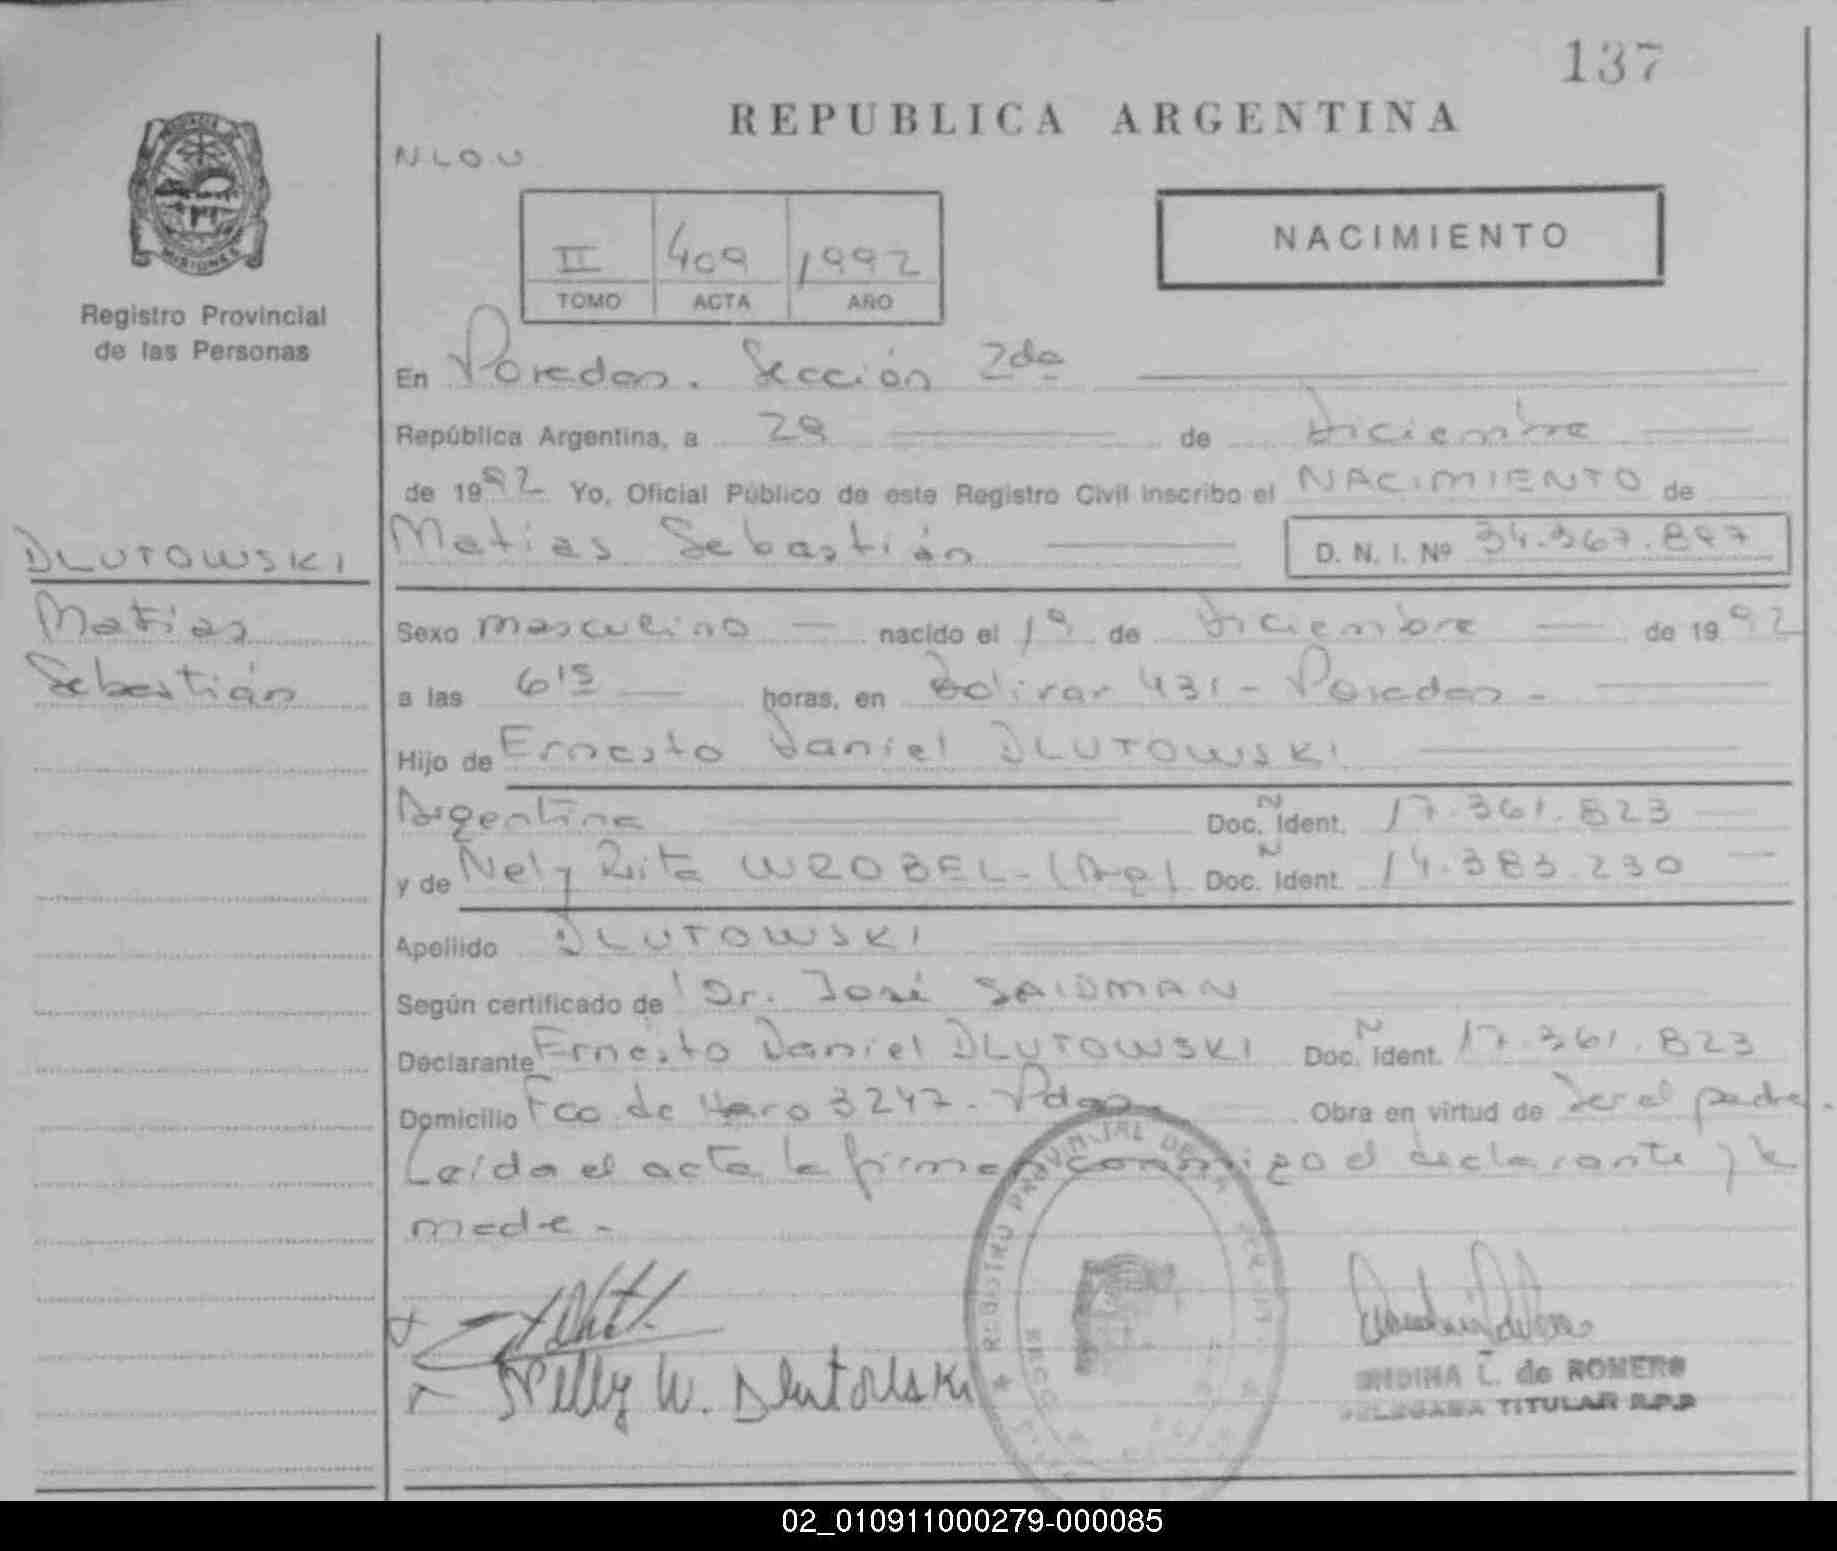 137
REPUBLICA ARGENTINA
NLOU
MISIONES
Registro Provincial
de las Personas
II 409 1992
TOMO ACTA AÑO
NACIMIENTO
En Posadas. Sección 2da
República Argentina, a 29 de Diciembre
de 1992 Yo, Oficial Público de este Registro Civil inscribo el NACIMIENTO de
Matias Sebastián D. N. I. Nº 34.367.897
DLUTOWSKI
Matias
Sebastián
Sexo masculino nacido el 19 de Diciembre de 1992
a las 6 15 horas, en Bolivar 431 - Posadas -
Hijo de Ernesto Daniel DLUTOWSKI
Argentina Doc. Ident. 17.361.823
y de Nely Rita WROBEL - (Arg) Doc. Ident. 14.383.230
Apellido DLUTOWSKI
Según certificado de Dr. José SAIDMAN
Declarante Ernesto Daniel DLUTOWSKI Doc. Ident. 17.361.823
Domicilio Fco de Haro 3247. Pdas. Obra en virtud de Ser el padre.
Leída el acta la firman conmigo el declarante y la
madre -
Nelly W. Dlutowski
REGISTRO PROVINCIAL DE LAS
L. de ROMERO
DELEGADA TITULAR R.P.P
02_010911000279-000085